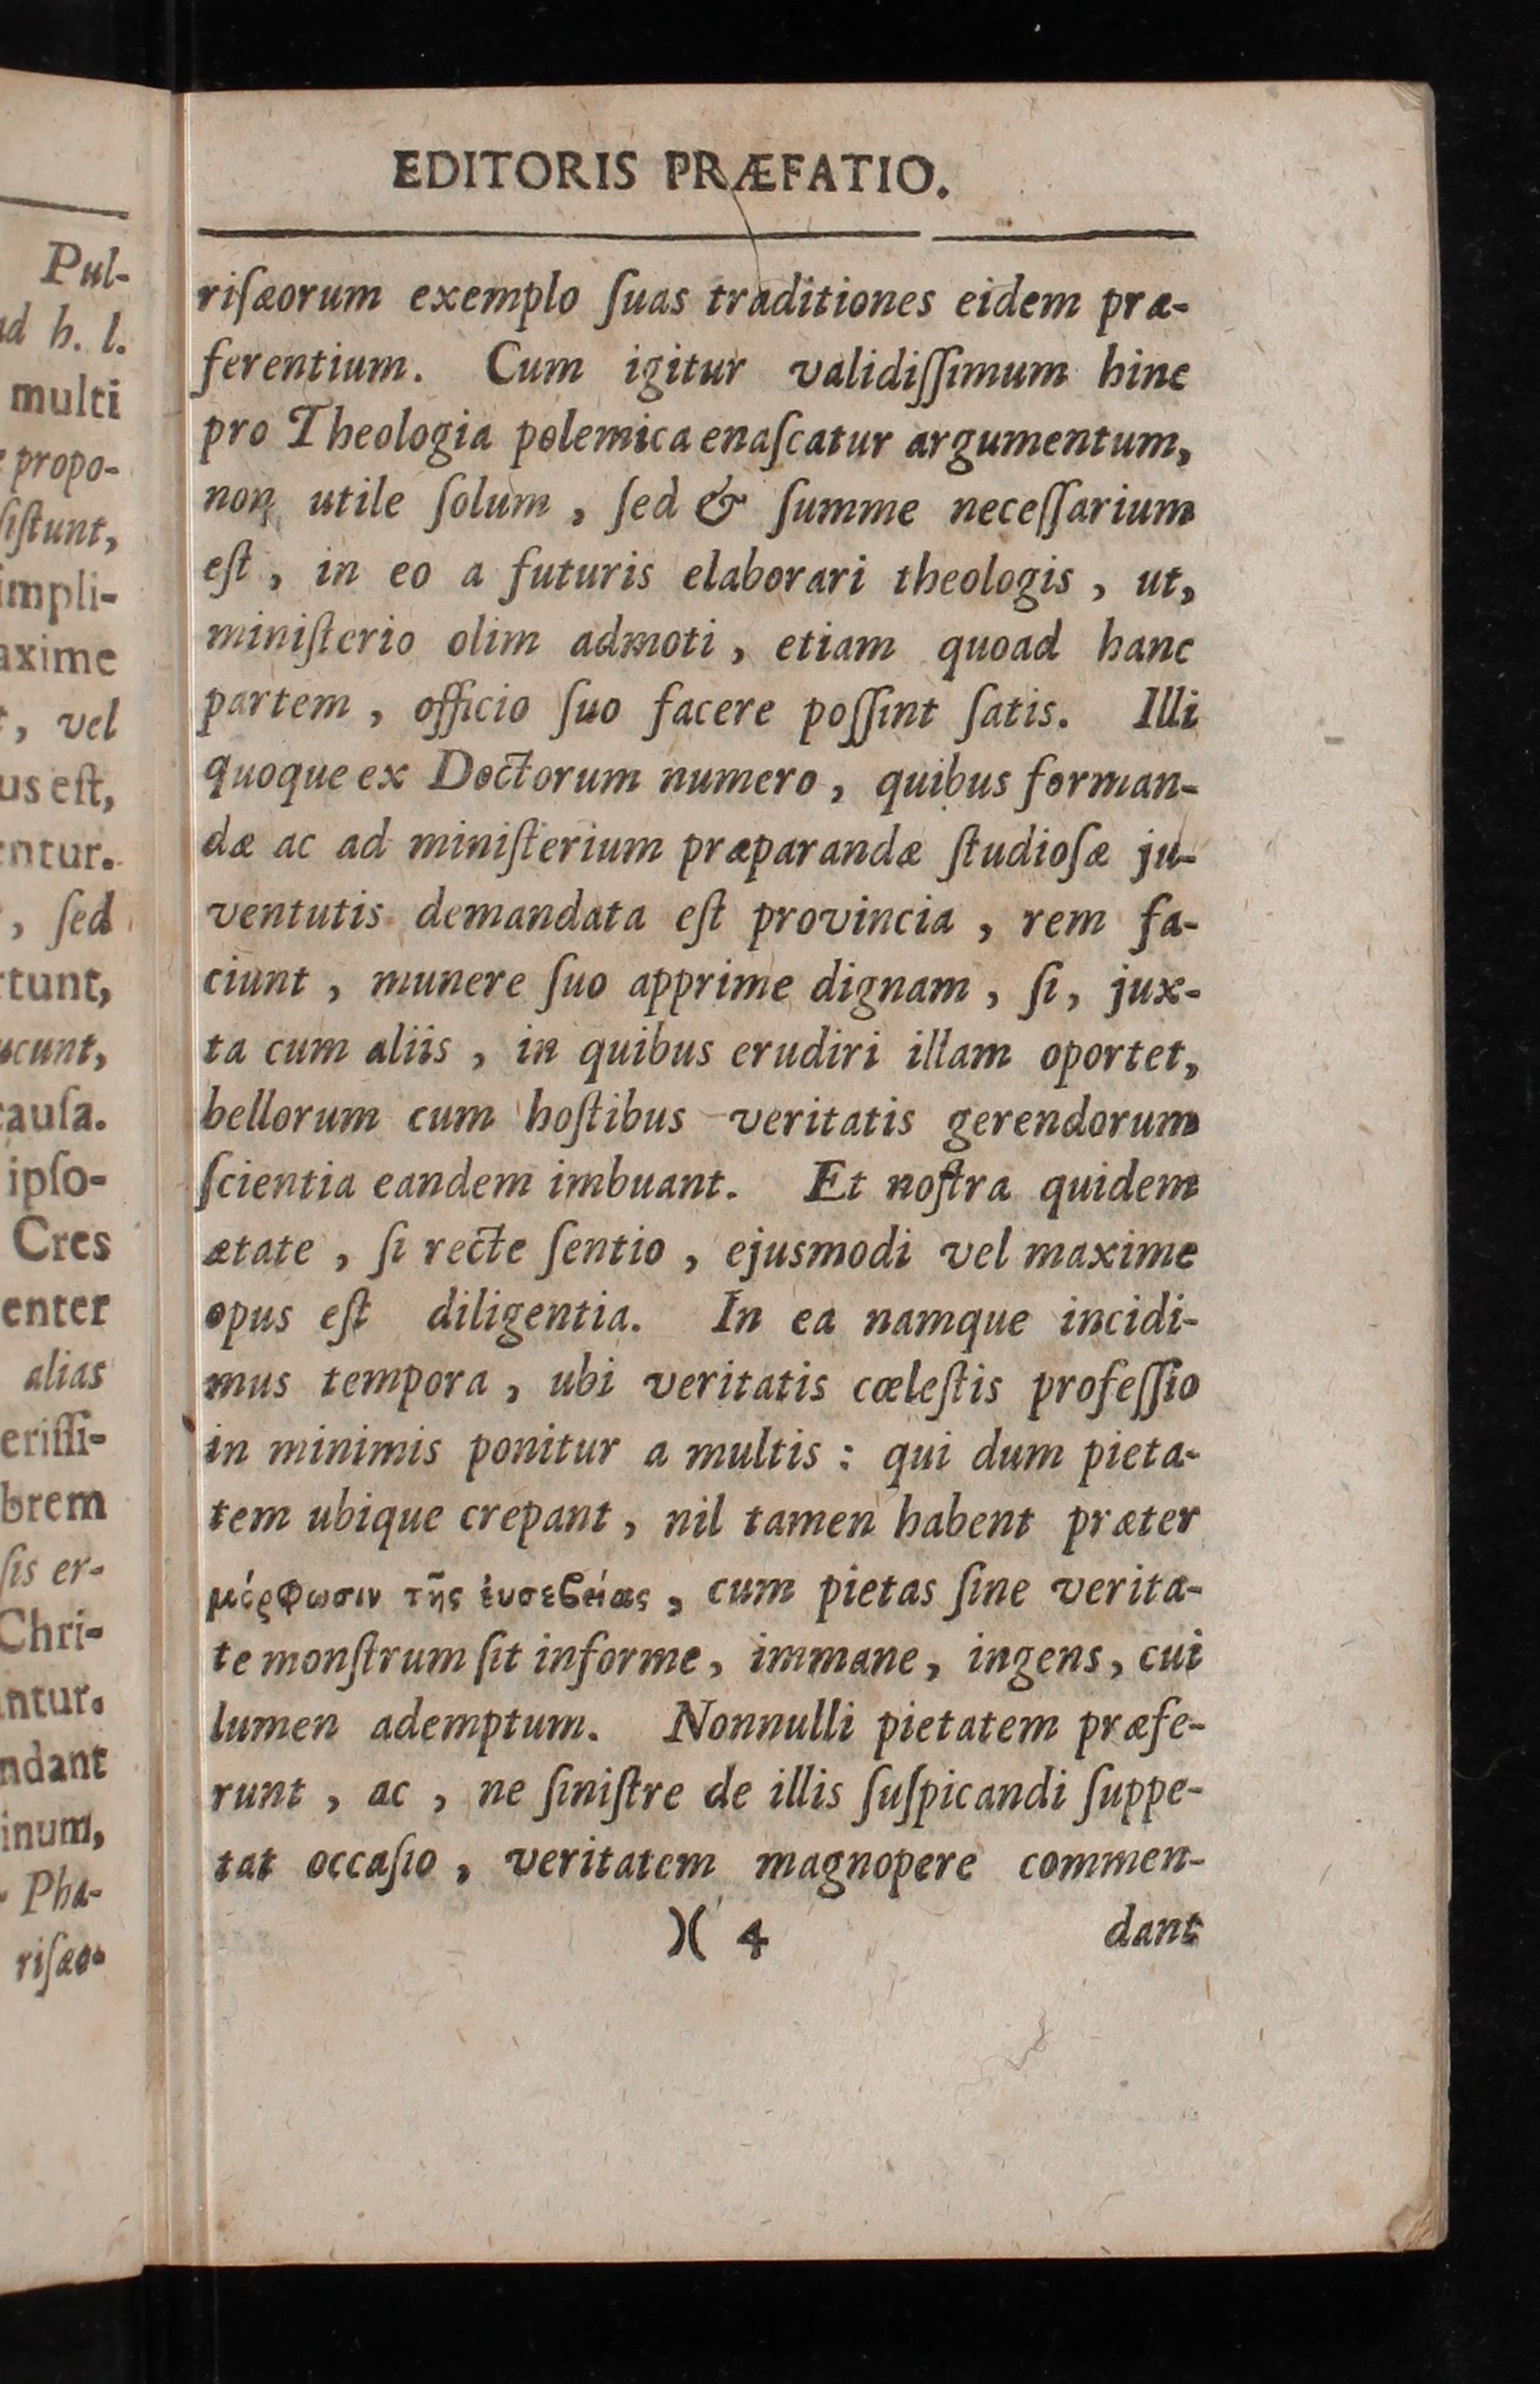 EDITORIS PRÆFATIO.
riſæorum exemplo ſuas traditiones eidem præ-
ferentium. Cum igitur validiſſimum hinc
pro Theologia polemica enaſcatur argumentum,
non utile ſolum , ſed & ſumme neceſſarium
eſt , in eo a futuris elaborari theologis , ut,
miniſterio olim admoti , etiam quoad hanc
partem , officio ſuo facere poſſint ſatis. Illi
quoque ex Doctorum numero , quibus forman-
dæ ac ad miniſterium præparandæ ſtudioſæ ju-
ventutis demandata eſt provincia , rem fa-
ciunt , munere ſuo apprime dignam , ſi, jux-
ta cum aliis , in quibus erudiri illam oportet,
bellorum cum hoſtibus veritatis gerendorum
ſcientia eandem imbuant. Et noſtra quidem
ætate , ſi recte ſentio , ejusmodi vel maxime
opus eſt diligentia. In ea namque incidi-
mus tempora , ubi veritatis cœleſtis profeſſio
in minimis ponitur a multis : qui dum pieta-
tem ubique crepant , nil tamen habent præter
μόρφωσιν τῆς ἐυσεβείας , cum pietas ſine verita-
te monſtrum ſit informe, immane, ingens, cui
lumen ademptum. Nonnulli pietatem præfe-
runt , ac , ne ſiniſtre de illis ſuſpicandi ſuppe-
tat occaſio , veritatem magnopere commen-
)( 4 dant
Pul-
ad h. l.
multi
propo-
ſiſtunt,
impli-
axime
, vel
us eſt,
entur.
, ſed
rtunt,
ucunt,
cauſa.
ipſo-
Cres
enter
alias
eriſſi-
brem
ſis er-
Chri-
ntur.
ndant
inum,
Pha-
riſæo-